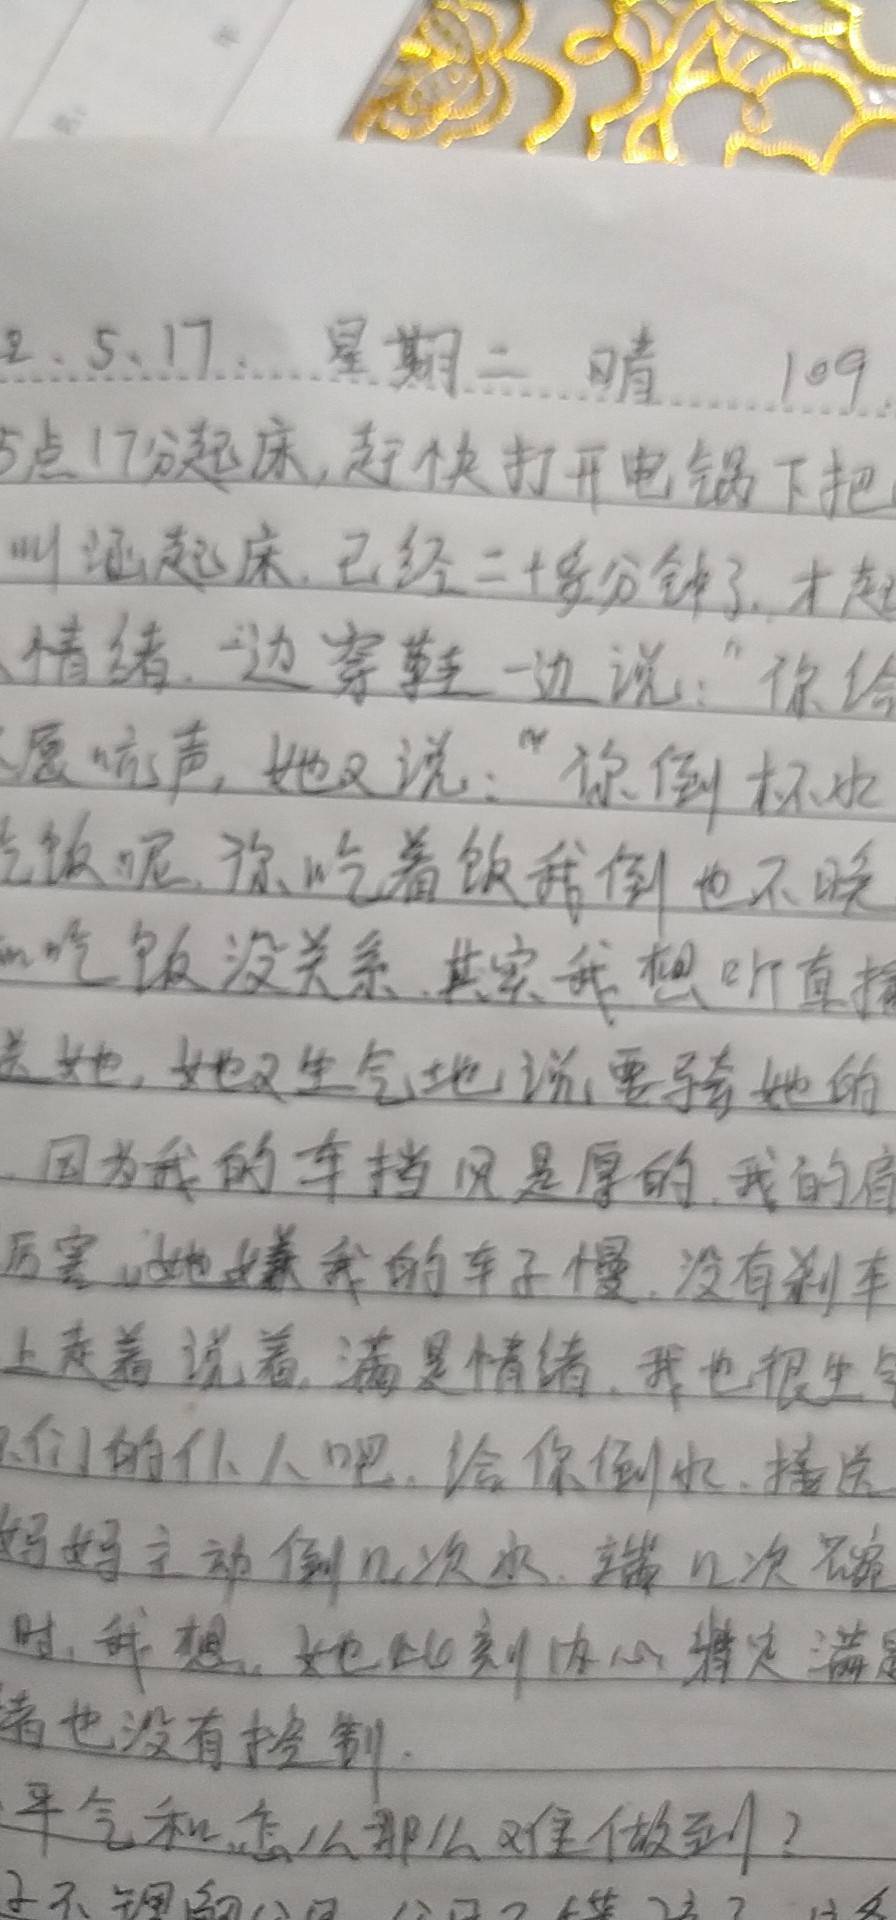 2.5.17. 星期二 晴 109.
5点17分起床,赶快打开电锅下把
叫涵起床.已经二十多分钟了.才起
情绪.一边穿鞋一边说:"你给
愿吭声,她又说:"你倒杯水
吃饭呢.你吃着饭我倒也不晚
吃饭没关系.其实我想听直播
送她,她又生气地说要骑她的
.因为我的车挡风是厚的.我的肩
厉害,她嫌我的车子慢.没有刹车
上走着说着.满是情绪.我也很生气
你们的仆人吧.给你倒水.接送
妈妈主动倒几次水.端几次碗
时.我想.她此刻内心 满是
绪也没有控制.
平气和怎么那么难做到?